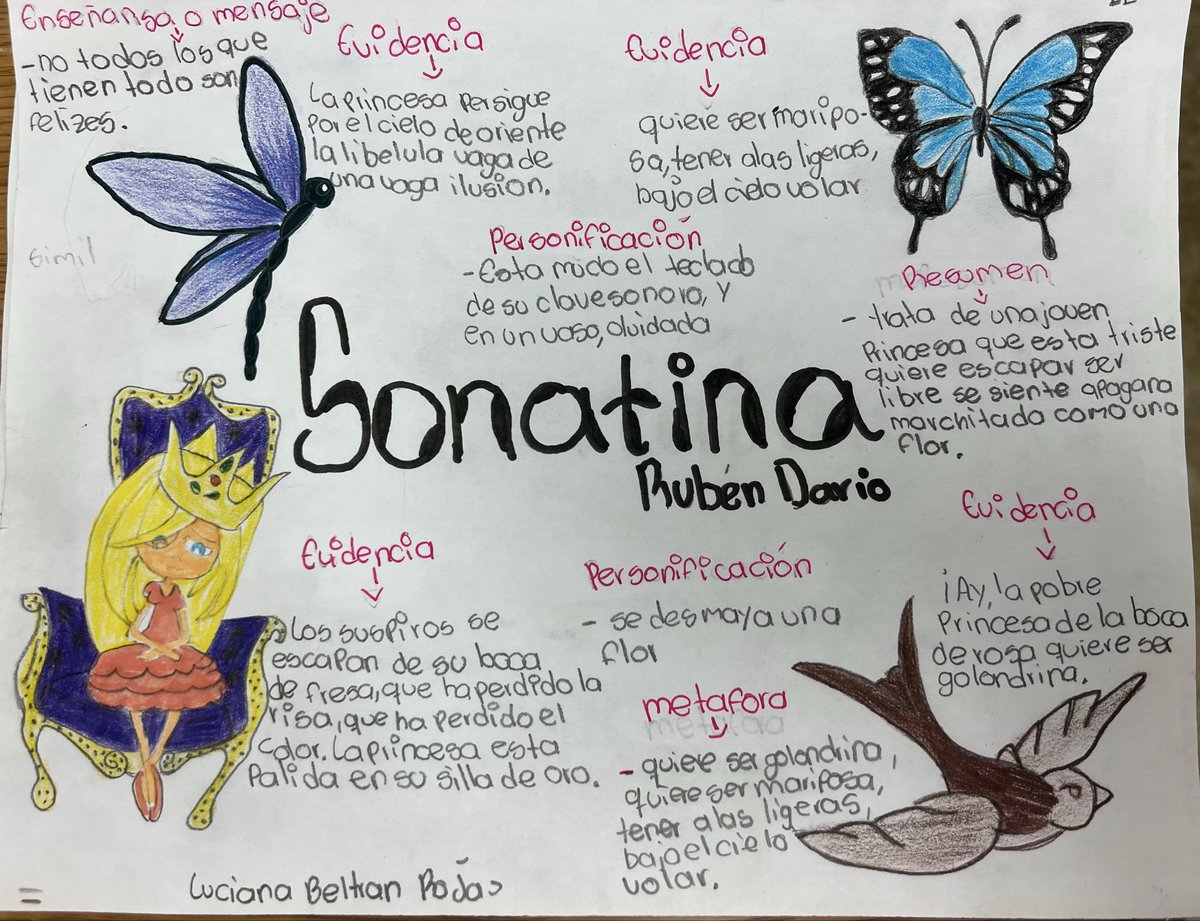 Enseñansa o mensaje
-no todos los que
tienen todo son
felizes.
Evidencia
La princesa persigue
por el cielo de oriente
la libelula vaga de
una vaga ilusion.
Evidencia
quiere ser maripo-
sa, tener alas ligeras,
bajo el cielo volar
Simil
Personificación
-Esta mudo el teclado
de su clave sonoro, y
en un vaso, olvidada
Resumen
- trata de una joven
Princesa que esta triste
quiere escapar ser
libre se siente apagana
marchitado como una
flor.
Sonatina
Rubén Dario
Evidencia
Los suspiros se
escapan de su boca
de fresa, que ha perdido la
risa, que ha perdido el
color. La princesa esta
Palida en su silla de oro.
Personificación
- se desmaya una
flor
metafora
- quiere ser golondrina,
quiere ser mariposa,
tener alas ligeras,
bajo el cielo
volar.
Evidencia
¡Ay, la pobre
Princesa de la boca
de rosa quiere ser
golondrina.
Luciana Beltran Rojas